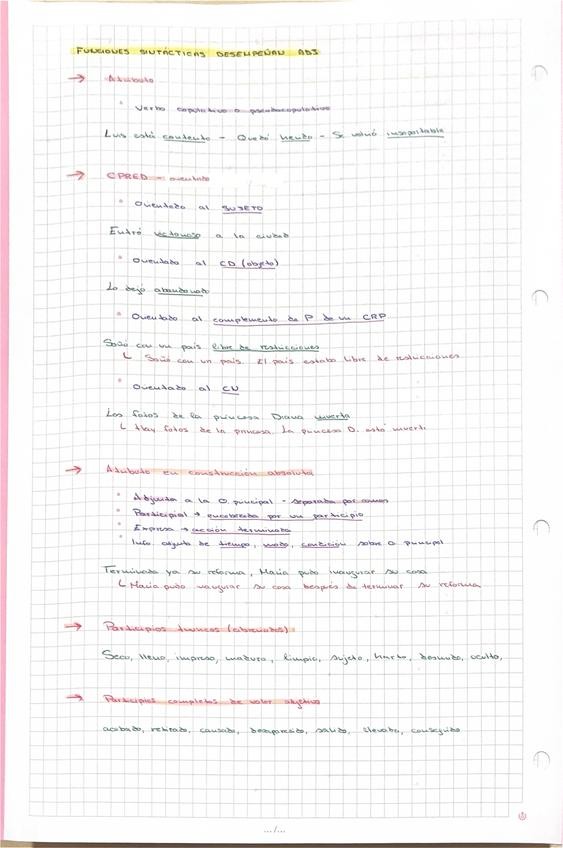 FUNCIONES SINTÁCTICAS DESEMPEÑAN ADJ
→ Atributo
Verbo copulativo o pseudocopulativo
Luis está contento - Quedó herido - Se volvió insoportable
→ CPRED - orientado
Orientado al SUJETO
Entró victorioso a la ciudad
Orientado al CD (objeto)
Lo dejó abandonado
Orientado al complemento de P de un CRP
Soñó con un país libre de restricciones
Soñó con un país. El país estaba libre de restricciones
Orientado al CN
Las fotos de la princesa Diana muerta
Hay fotos de la princesa. La princesa D. está muerta
→ Atributo en construcción absoluta
Adjunta a la O. principal - separada por comas
Participial → encabezada por un participio
Expresa → acción terminada
Info adjunta de tiempo, modo, condición sobre O principal
Terminada ya su reforma, María pudo inaugurar su casa
María pudo inaugurar su casa después de terminar su reforma
→ Participios truncos (abreviados)
Seco, lleno, impreso, maduro, limpio, sujeto, harto, desnudo, oculto,
→ Participios completos de valor adjetivo
acabado, retirado, cansado, desaparecido, salido, elevado, conseguido
.../...